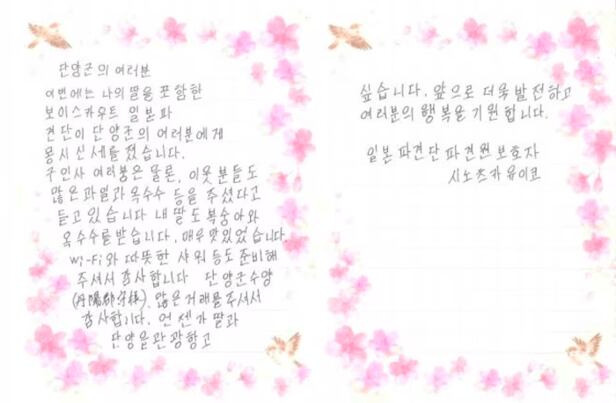 단양군의 여러분
이번에는 나의 딸을 포함한
보이스카우트 일본파
견단이 단양군의 여러분에게
몽시 신세를 졌습니다.
구인사 여러분은 물론, 이웃 분들도
많은 과일과 옥수수 등을 주셨다고
듣고 있습니다 내 딸도 복숭아와
옥수수를 받습니다, 매우 맛있었습니다.
Wi-Fi와 따뜻한 샤워 등도 준비해
주셔서 감사합니다 단양군수양
많은 거래를 주셔서
감사합니다. 언젠가 딸과
단양을 관광하고
싶습니다. 앞으로 더욱 발전하고
여러분의 행복을 기원합니다.
일본 파견단 파견원 보호자
시노츠카 유이코